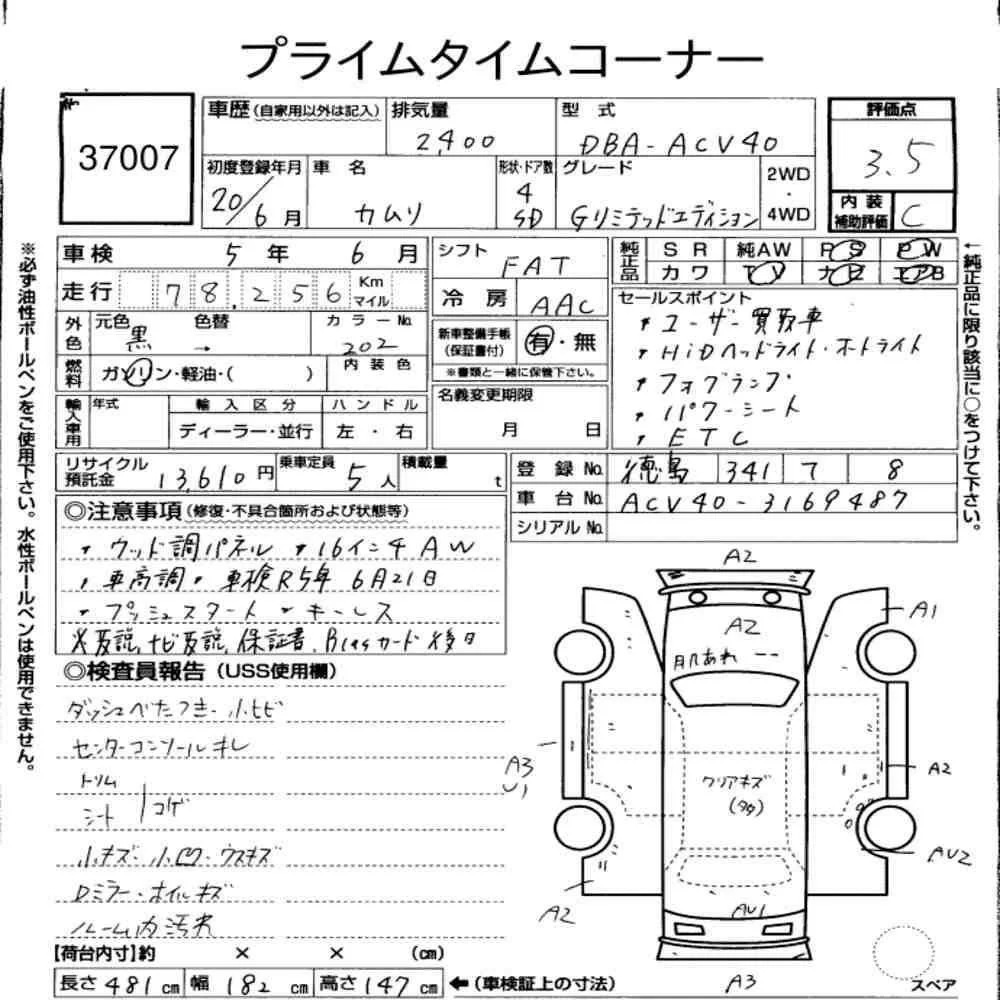 プライムタイムコーナー
37007
車歴 (自家用以外は記入)
排気量
2,400
型 式
DBA-ACV40
評価点
3.5
初度登録年月
20/6 月
車 名
カムリ
形状・ドア数
4
SD
グレード
Gリミテッドエディション
2WD
・
4WD
内 装
補助評価
C
車検 5 年 6 月
シフト
FAT
純正品
S R 純AW P S P W
カ ワ T V ナ ビ エアB
走行 78,256 Km
マイル
冷 房
AAC
セールスポイント
・ユーザー買取車
・HiDヘッドライト・オートライト
・フォグランプ
・パワーシート
・ETC
外色
元色 黒
色替 →
カラーNo.
202
新車整備手帳
(保証書付)
有・無
※書類と一緒に保管下さい。
燃料
ガソリン・軽油・( )
内 装 色
名義変更期限
月 日
輸入車用
年式
輸 入 区 分
ディーラー・並行
ハ ン ド ル
左 ・ 右
リサイクル
預託金 13,610 円
乗車定員 5 人
積載量 t
登 録 No. 徳島 341 7 8
車 台 No. ACV40-3169487
シリアルNo.
◎注意事項 (修復・不具合箇所および状態等)
・ウッド調パネル ・16インチAW
・車高調 ・車検R5年6月21日
・プッシュスタート ・キーレス
※取説、ナビ取説、保証書、B-casカード後日
◎検査員報告 (USS使用欄)
ダッシュべたつき・小ヒビ
センターコンソールキレ
トリム
シート
コゲ
小キズ・小凹・ウスキズ
Dミラー・ホイルキズ
ルーム内汚れ
A2
A1
A2
飛石あれ
A3
U1
A2
クリアキズ
(タタ)
AU2
A2
AU1
A3
スペア
【荷台内寸】約 × × (cm)
長さ 481 cm 幅 182 cm 高さ 147 cm ←(車検証上の寸法)
※必ず油性ボールペンをご使用下さい。水性ボールペンは使用できません。
←純正品に限り該当に○をつけて下さい。